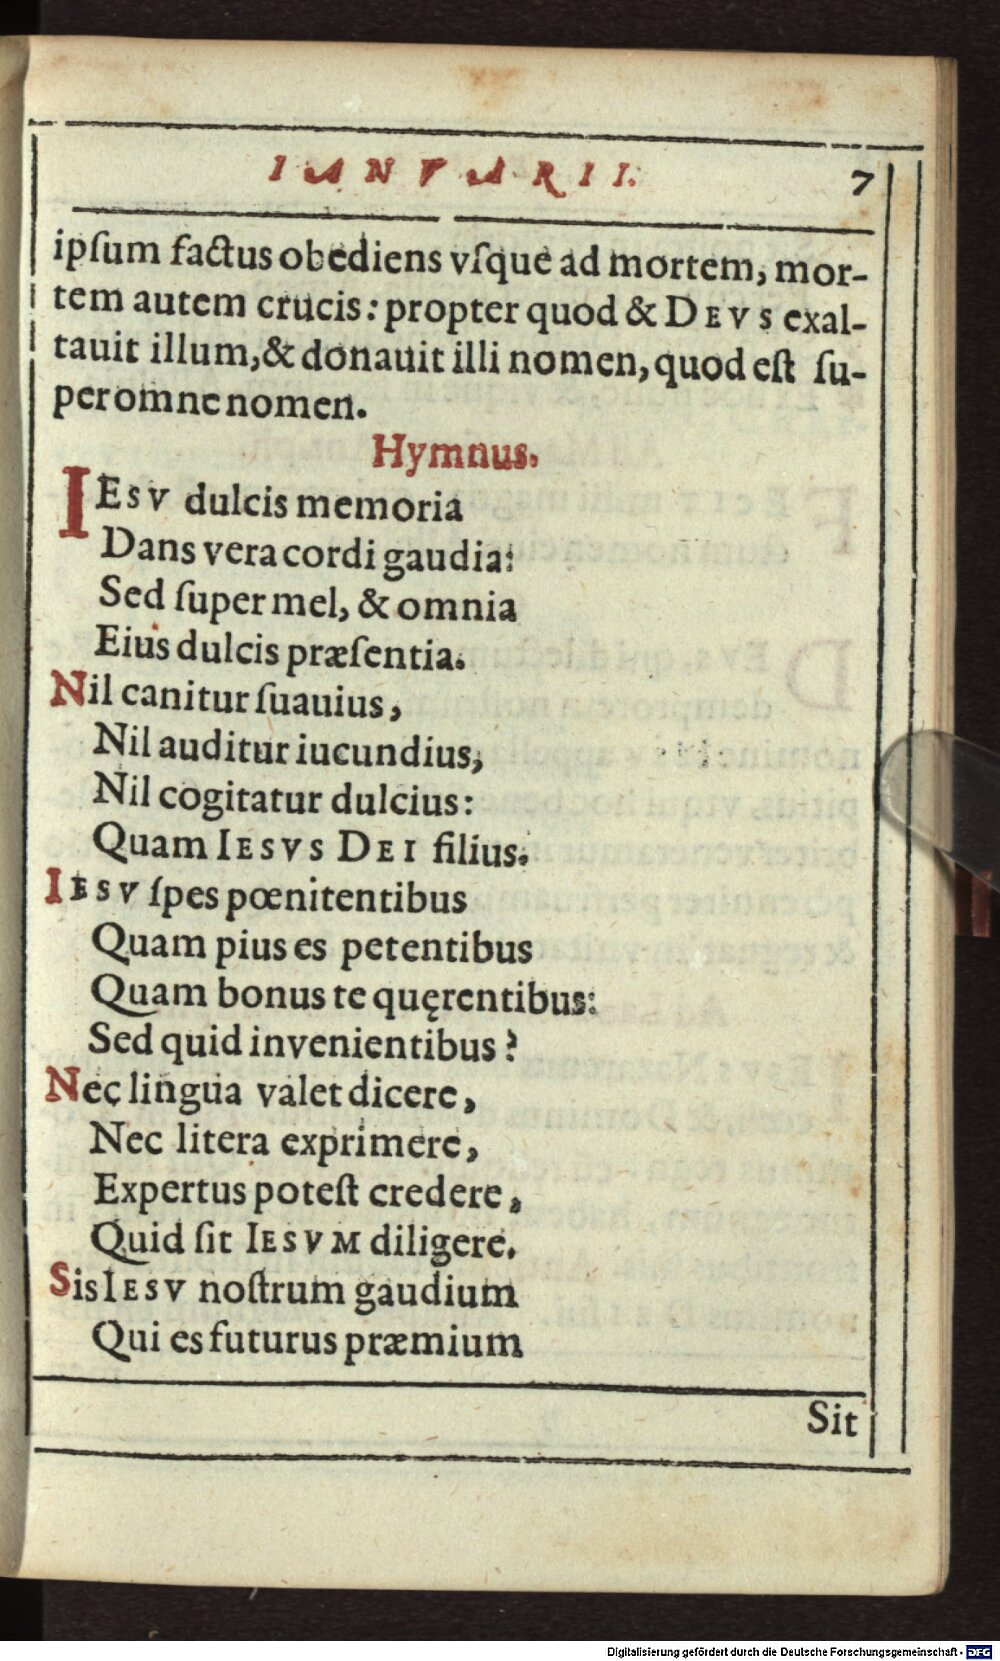 IANVARII. 7
ipſum factus obediens vſque ad mortem, mor-
tem autem crucis: propter quod & DEVS exal-
tauit illum, & donauit illi nomen, quod eſt ſu-
per omne nomen.
Hymnus.
IESV dulcis memoria
Dans vera cordi gaudia:
Sed ſuper mel, & omnia
Eius dulcis præſentia.
Nil canitur ſuauius,
Nil auditur iucundius,
Nil cogitatur dulcius:
Quam IESVS DEI filius.
IESV ſpes pœnitentibus
Quam pius es petentibus
Quam bonus te quęrentibus:
Sed quid invenientibus?
Nec lingua valet dicere,
Nec litera exprimere,
Expertus poteſt credere,
Quid ſit IESVM diligere.
Sis IESV noſtrum gaudium
Qui es futurus præmium
Sit
Digitalisierung gefördert durch die Deutsche Forschungsgemeinschaft - DFG